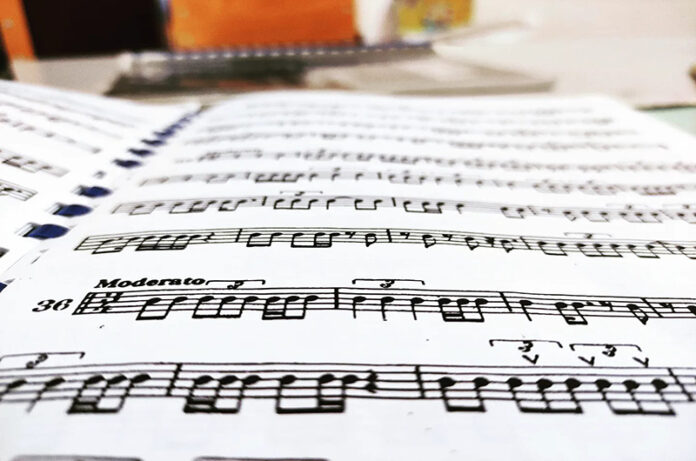 Moderato
3
3
36
3
3
3